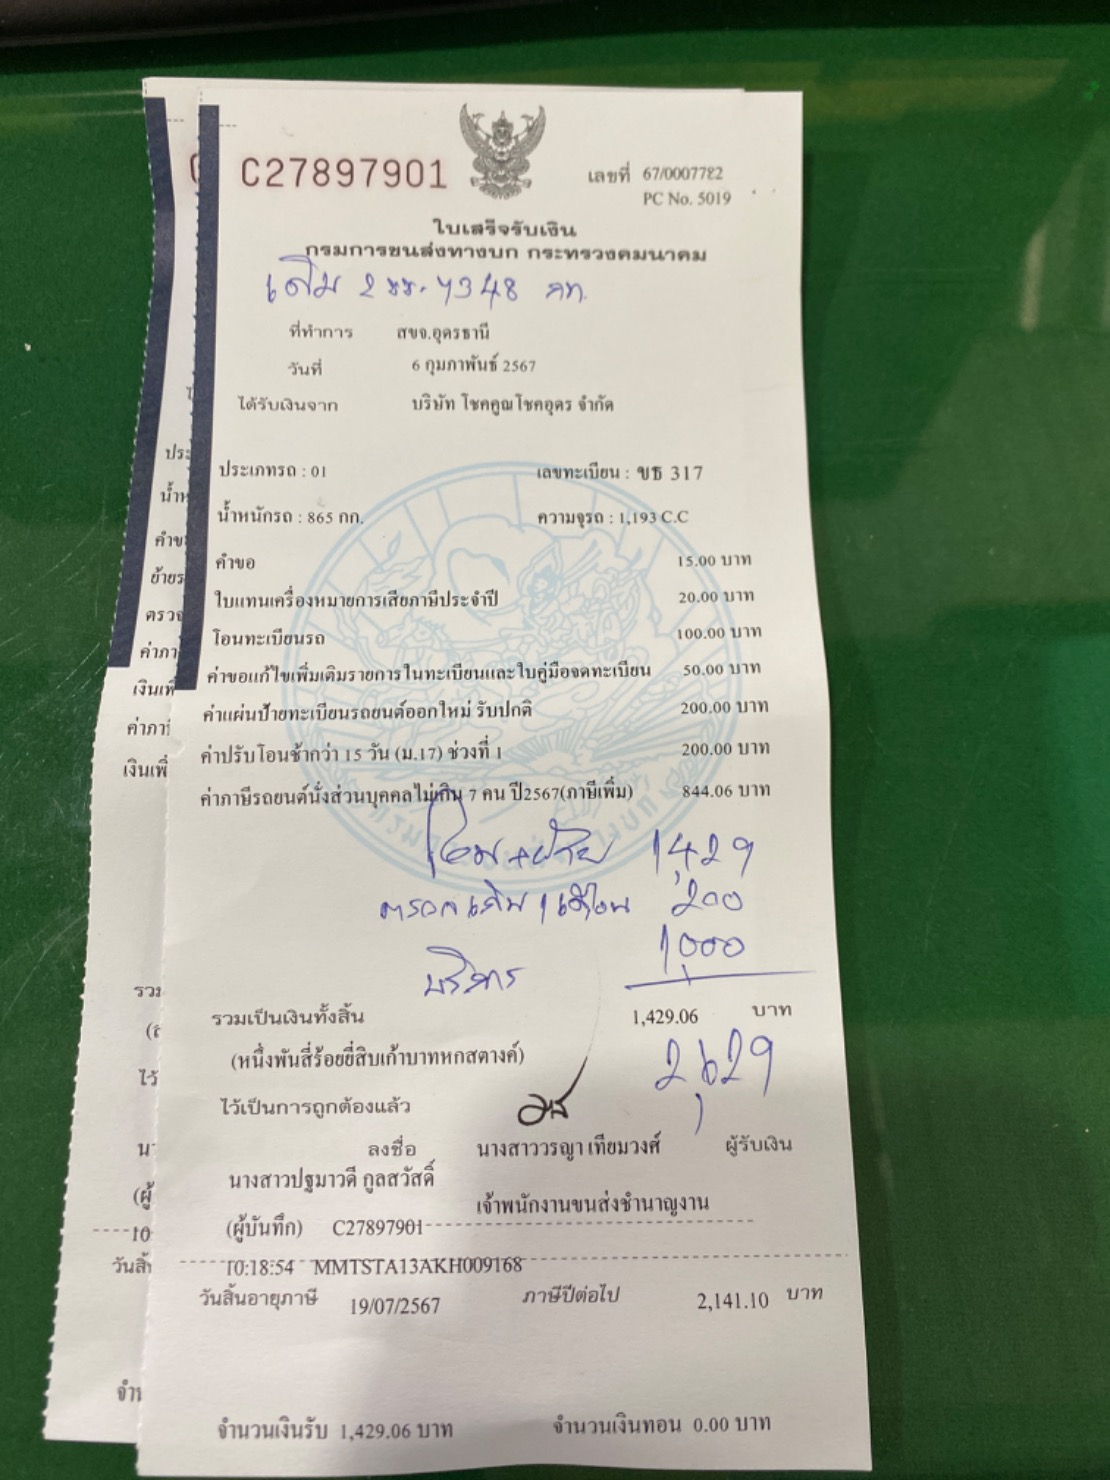 C27897901
เลขที่ 67/0007782
PC No. 5019
ใบเสร็จรับเงิน
กรมการขนส่งทางบก กระทรวงคมนาคม
เดิม 2ขร-7348 กท.
ที่ทำการ สขจ.อุดรธานี
วันที่ 6 กุมภาพันธ์ 2567
ได้รับเงินจาก บริษัท โชคคูณโชคอุดร จำกัด
ประเภทรถ : 01 เลขทะเบียน : ขธ 317
น้ำหนักรถ : 865 กก. ความจุรถ : 1,193 C.C
คำขอ 15.00 บาท
ใบแทนเครื่องหมายการเสียภาษีประจำปี 20.00 บาท
โอนทะเบียนรถ 100.00 บาท
ค่าขอแก้ไขเพิ่มเติมรายการในทะเบียนและใบคู่มือจดทะเบียน 50.00 บาท
ค่าแผ่นป้ายทะเบียนรถยนต์ออกใหม่ รับปกติ 200.00 บาท
ค่าปรับโอนช้ากว่า 15 วัน (ม.17) ช่วงที่ 1 200.00 บาท
ค่าภาษีรถยนต์นั่งส่วนบุคคลไม่เกิน 7 คน ปี2567(ภาษีเพิ่ม) 844.06 บาท
โอน+ย้าย 1,429
200
บริการ 1,000
รวมเป็นเงินทั้งสิ้น 1,429.06 บาท
(หนึ่งพันสี่ร้อยยี่สิบเก้าบาทหกสตางค์)
2,629
ไว้เป็นการถูกต้องแล้ว
ลงชื่อ นางสาววรญา เทียมวงศ์ ผู้รับเงิน
นางสาวปฐมาวดี กูลสวัสดิ์
เจ้าพนักงานขนส่งชำนาญงาน
(ผู้บันทึก) C27897901
10:18:54 MMTSTA13AKH009168
วันสิ้นอายุภาษี 19/07/2567 ภาษีปีต่อไป 2,141.10 บาท
จำนวนเงินรับ 1,429.06 บาท จำนวนเงินทอน 0.00 บาท